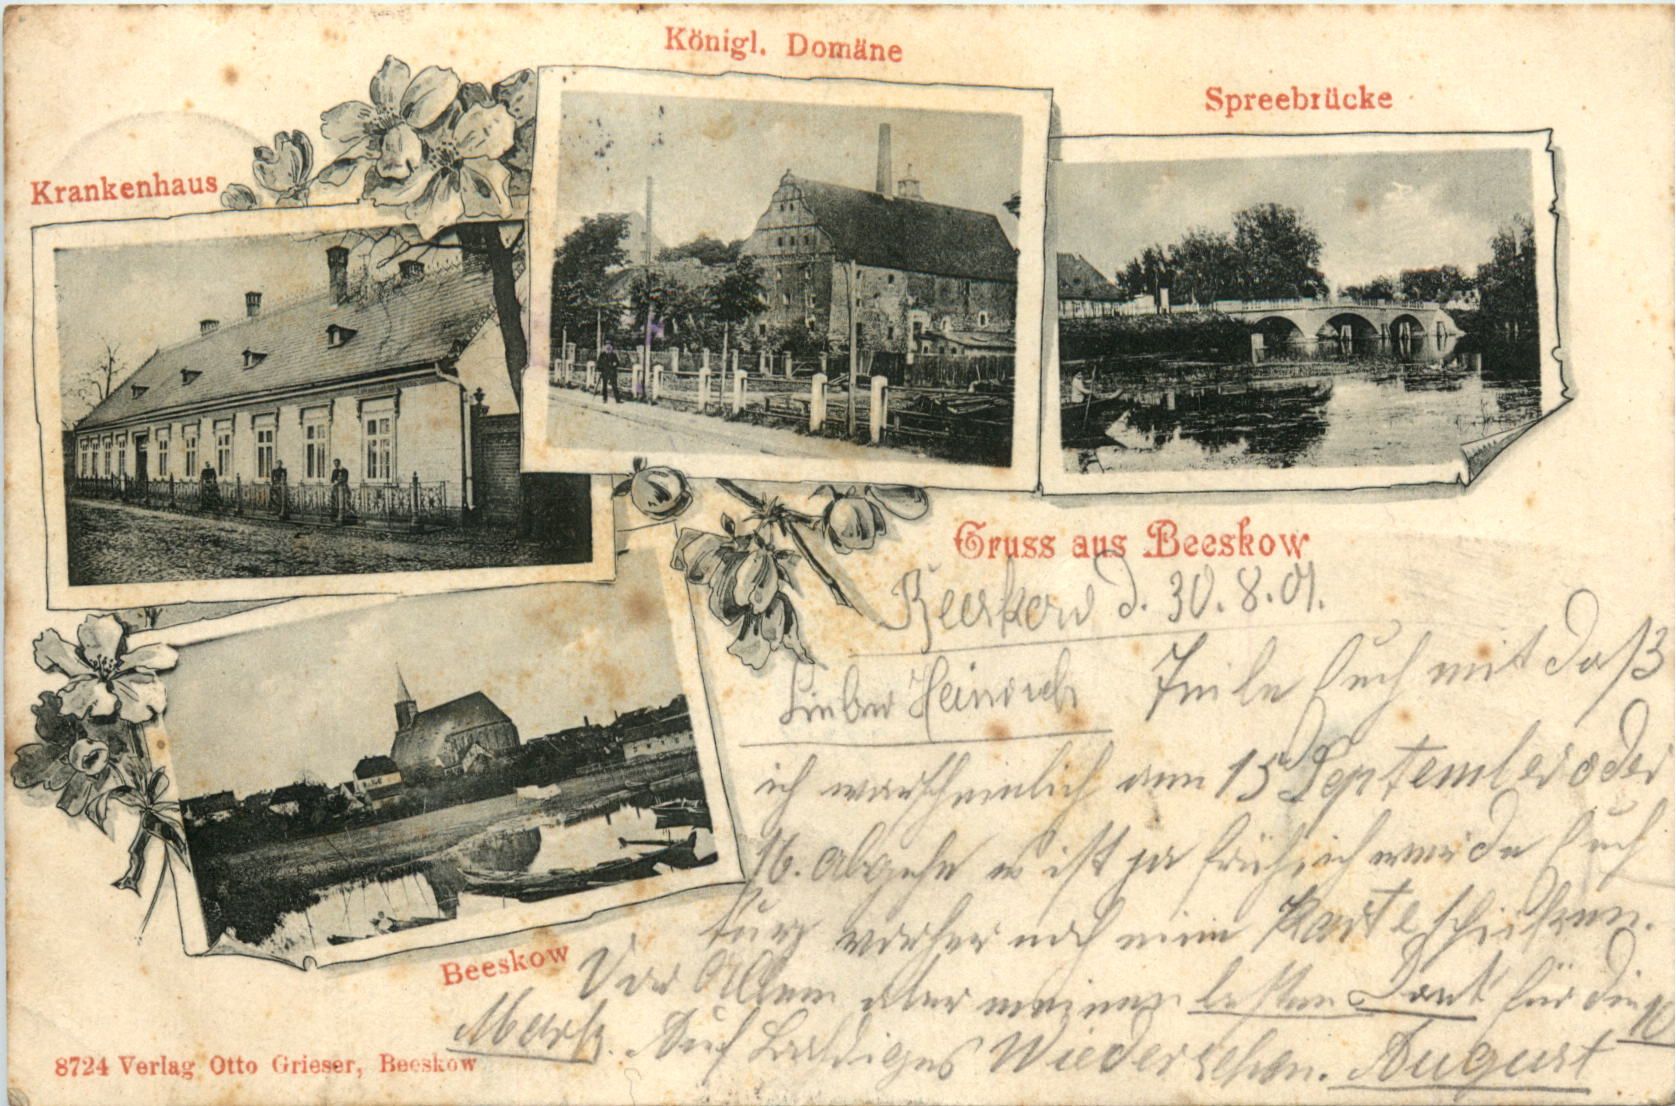 Königl. Domäne
Spreebrücke
Krankenhaus
Gruss aus Beeskow
Beeskow d. 30.8.01.
Lieber Heinrich Teile Euch mit daß
ich warscheinlich am 15 September oder
16. abgehe es ist ja früh ich werde Euch
kurz vorher noch eine Karte schicken.
Vor Allem aber meinen besten Dank für die
Mark. Auf Baldiges Wiedersehen. August
Beeskow
8724 Verlag Otto Grieser, Beeskow